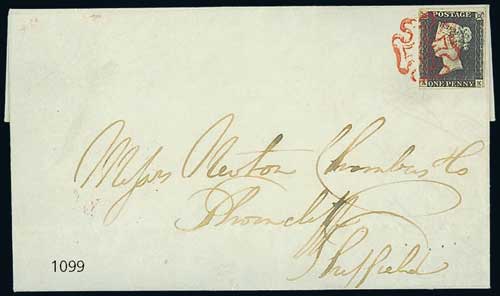 POSTAGE
ONE PENNY
Messrs Newton Chambers & Co
Thorncliffe
Sheffield
1099